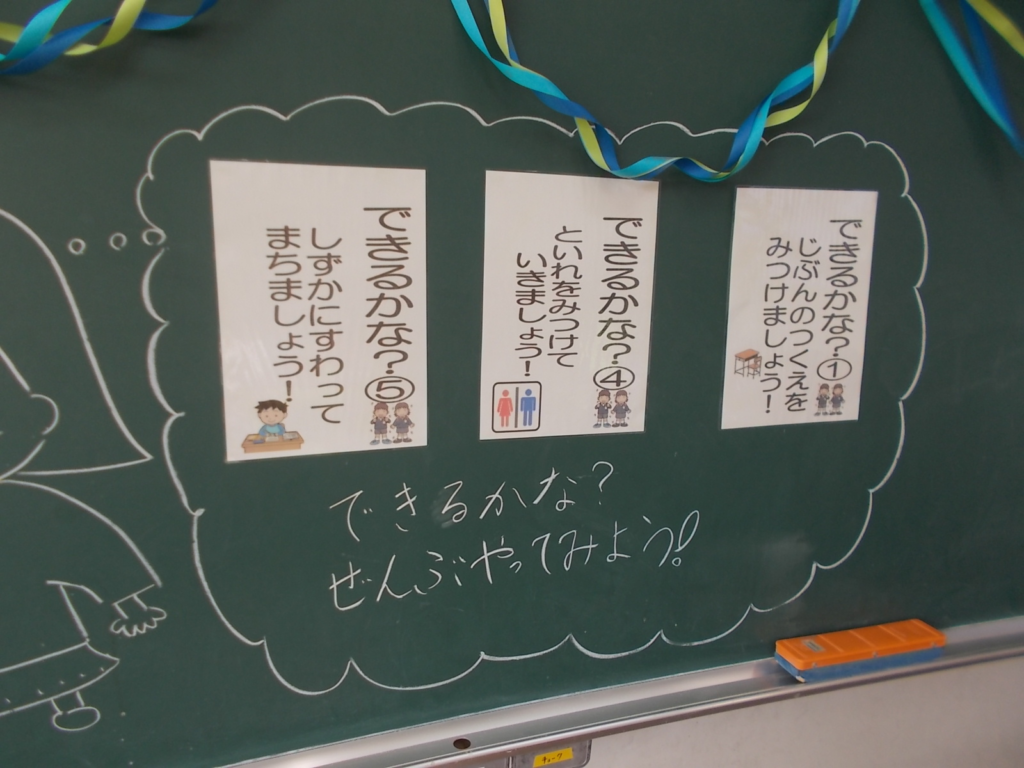 できるかな？①
じぶんのつくえを
みつけましょう！
できるかな？④
といれをみつけて
いきましょう！
できるかな？⑤
しずかにすわって
まちましょう！
できるかな？
ぜんぶやってみよう！